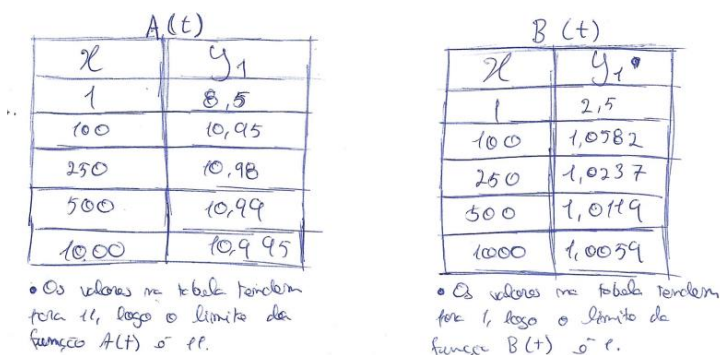 A(t)
x y1
1 8,5
100 10,95
250 10,98
500 10,99
1000 10,995
• Os valores na tabela tendem
para 11, logo o limite da
função A(t) é 11.
B (t)
x y1
1 2,5
100 1,0582
250 1,0237
500 1,0119
1000 1,0059
• Os valores na tabela tendem
para 1, logo o limite da
função B(t) é 1.